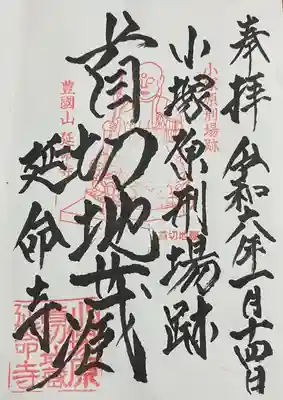 奉拝 令和六年一月十四日
小塚原刑場跡
小塚原刑場跡
首切地蔵
首切地蔵
豊國山 延命寺
延命寺